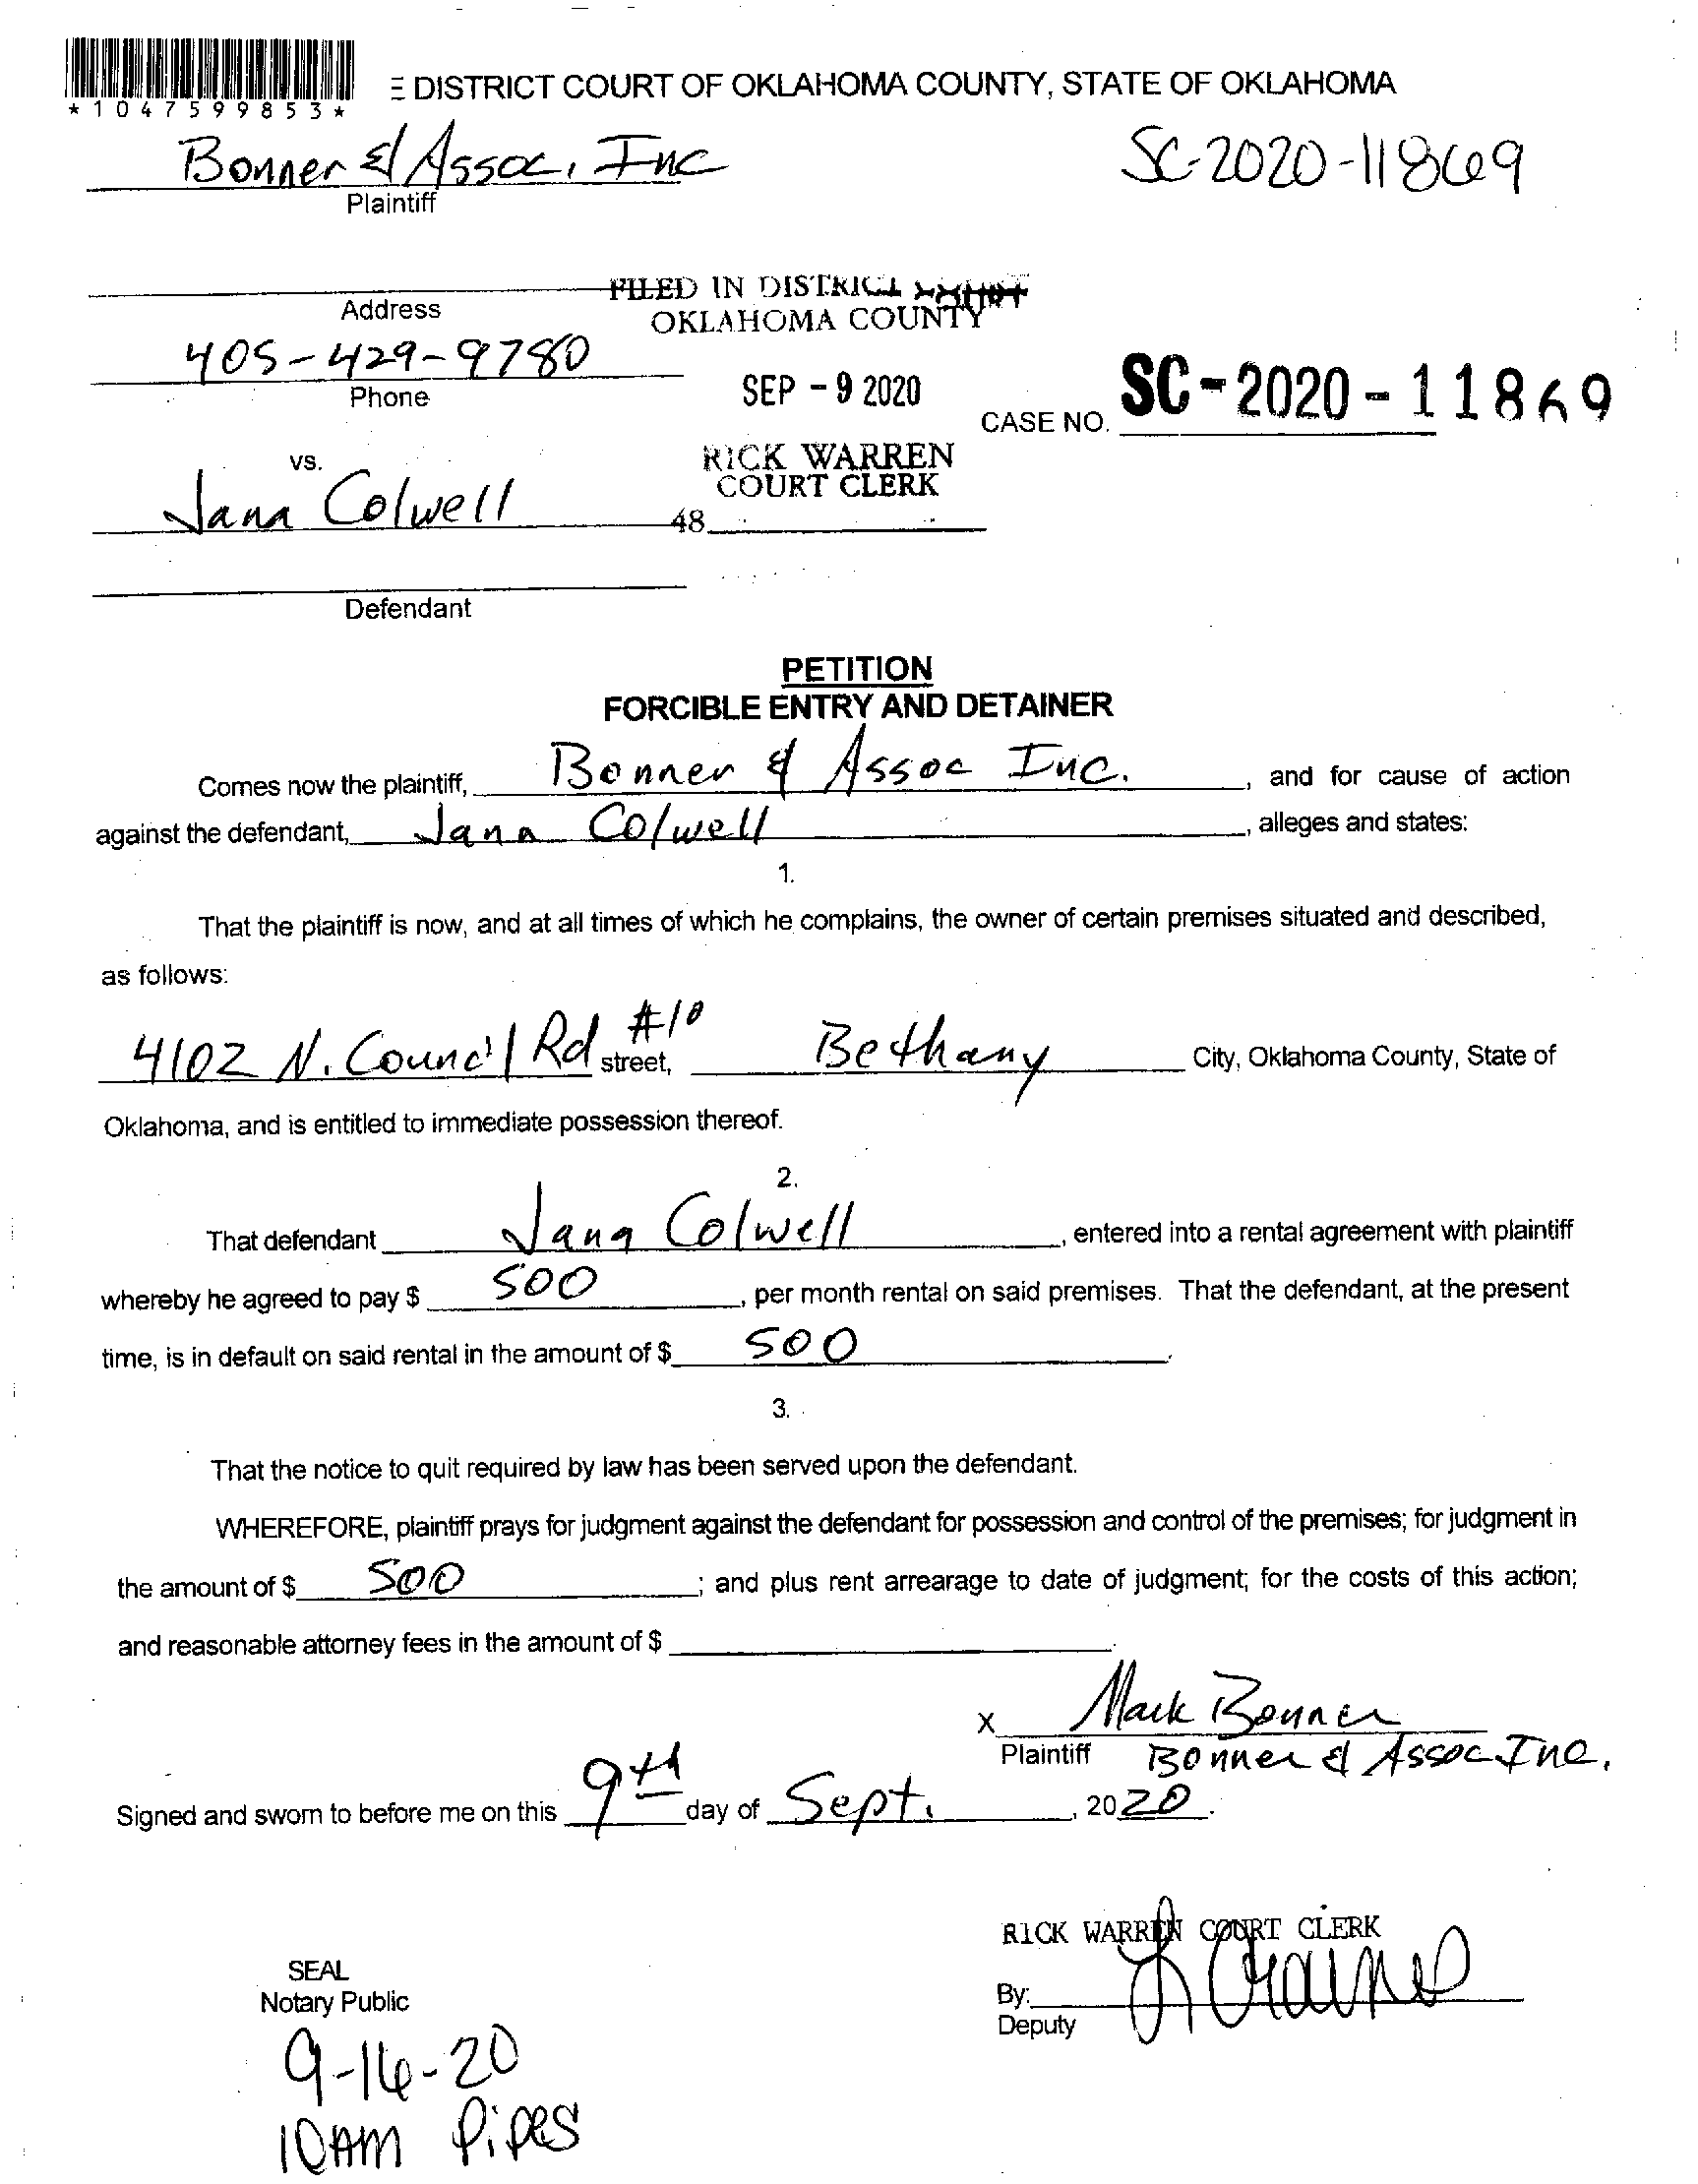 *1047599853*
E DISTRICT COURT OF OKLAHOMA COUNTY, STATE OF OKLAHOMA
Bonner & Assoc, Inc
SC-2020-11869
Plaintiff
FILED IN DISTRICT COURT
Address
OKLAHOMA COUNTY
405-429-9780
Phone
SEP - 9 2020
CASE NO. SC-2020-11869
vs.
RICK WARREN
COURT CLERK
Jana Colwell
48
Defendant
PETITION
FORCIBLE ENTRY AND DETAINER
Comes now the plaintiff, Bonner & Assoc Inc., and for cause of action
against the defendant, Jana Colwell, alleges and states:
1.
That the plaintiff is now, and at all times of which he complains, the owner of certain premises situated and described,
as follows:
4102 N. Council Rd #10 street, Bethany City, Oklahoma County, State of
Oklahoma, and is entitled to immediate possession thereof.
2.
That defendant Jana Colwell, entered into a rental agreement with plaintiff
whereby he agreed to pay $ 500, per month rental on said premises. That the defendant, at the present
time, is in default on said rental in the amount of $ 500.
3.
That the notice to quit required by law has been served upon the defendant.
WHEREFORE, plaintiff prays for judgment against the defendant for possession and control of the premises; for judgment in
the amount of $ 500; and plus rent arrearage to date of judgment; for the costs of this action;
and reasonable attorney fees in the amount of $
x Mark Bonner
Plaintiff Bonner & Assoc Inc.
Signed and sworn to before me on this 9th day of Sept., 2020.
RICK WARREN COURT CLERK
SEAL
Notary Public
By:
Deputy
9-16-20
10AM Pipes